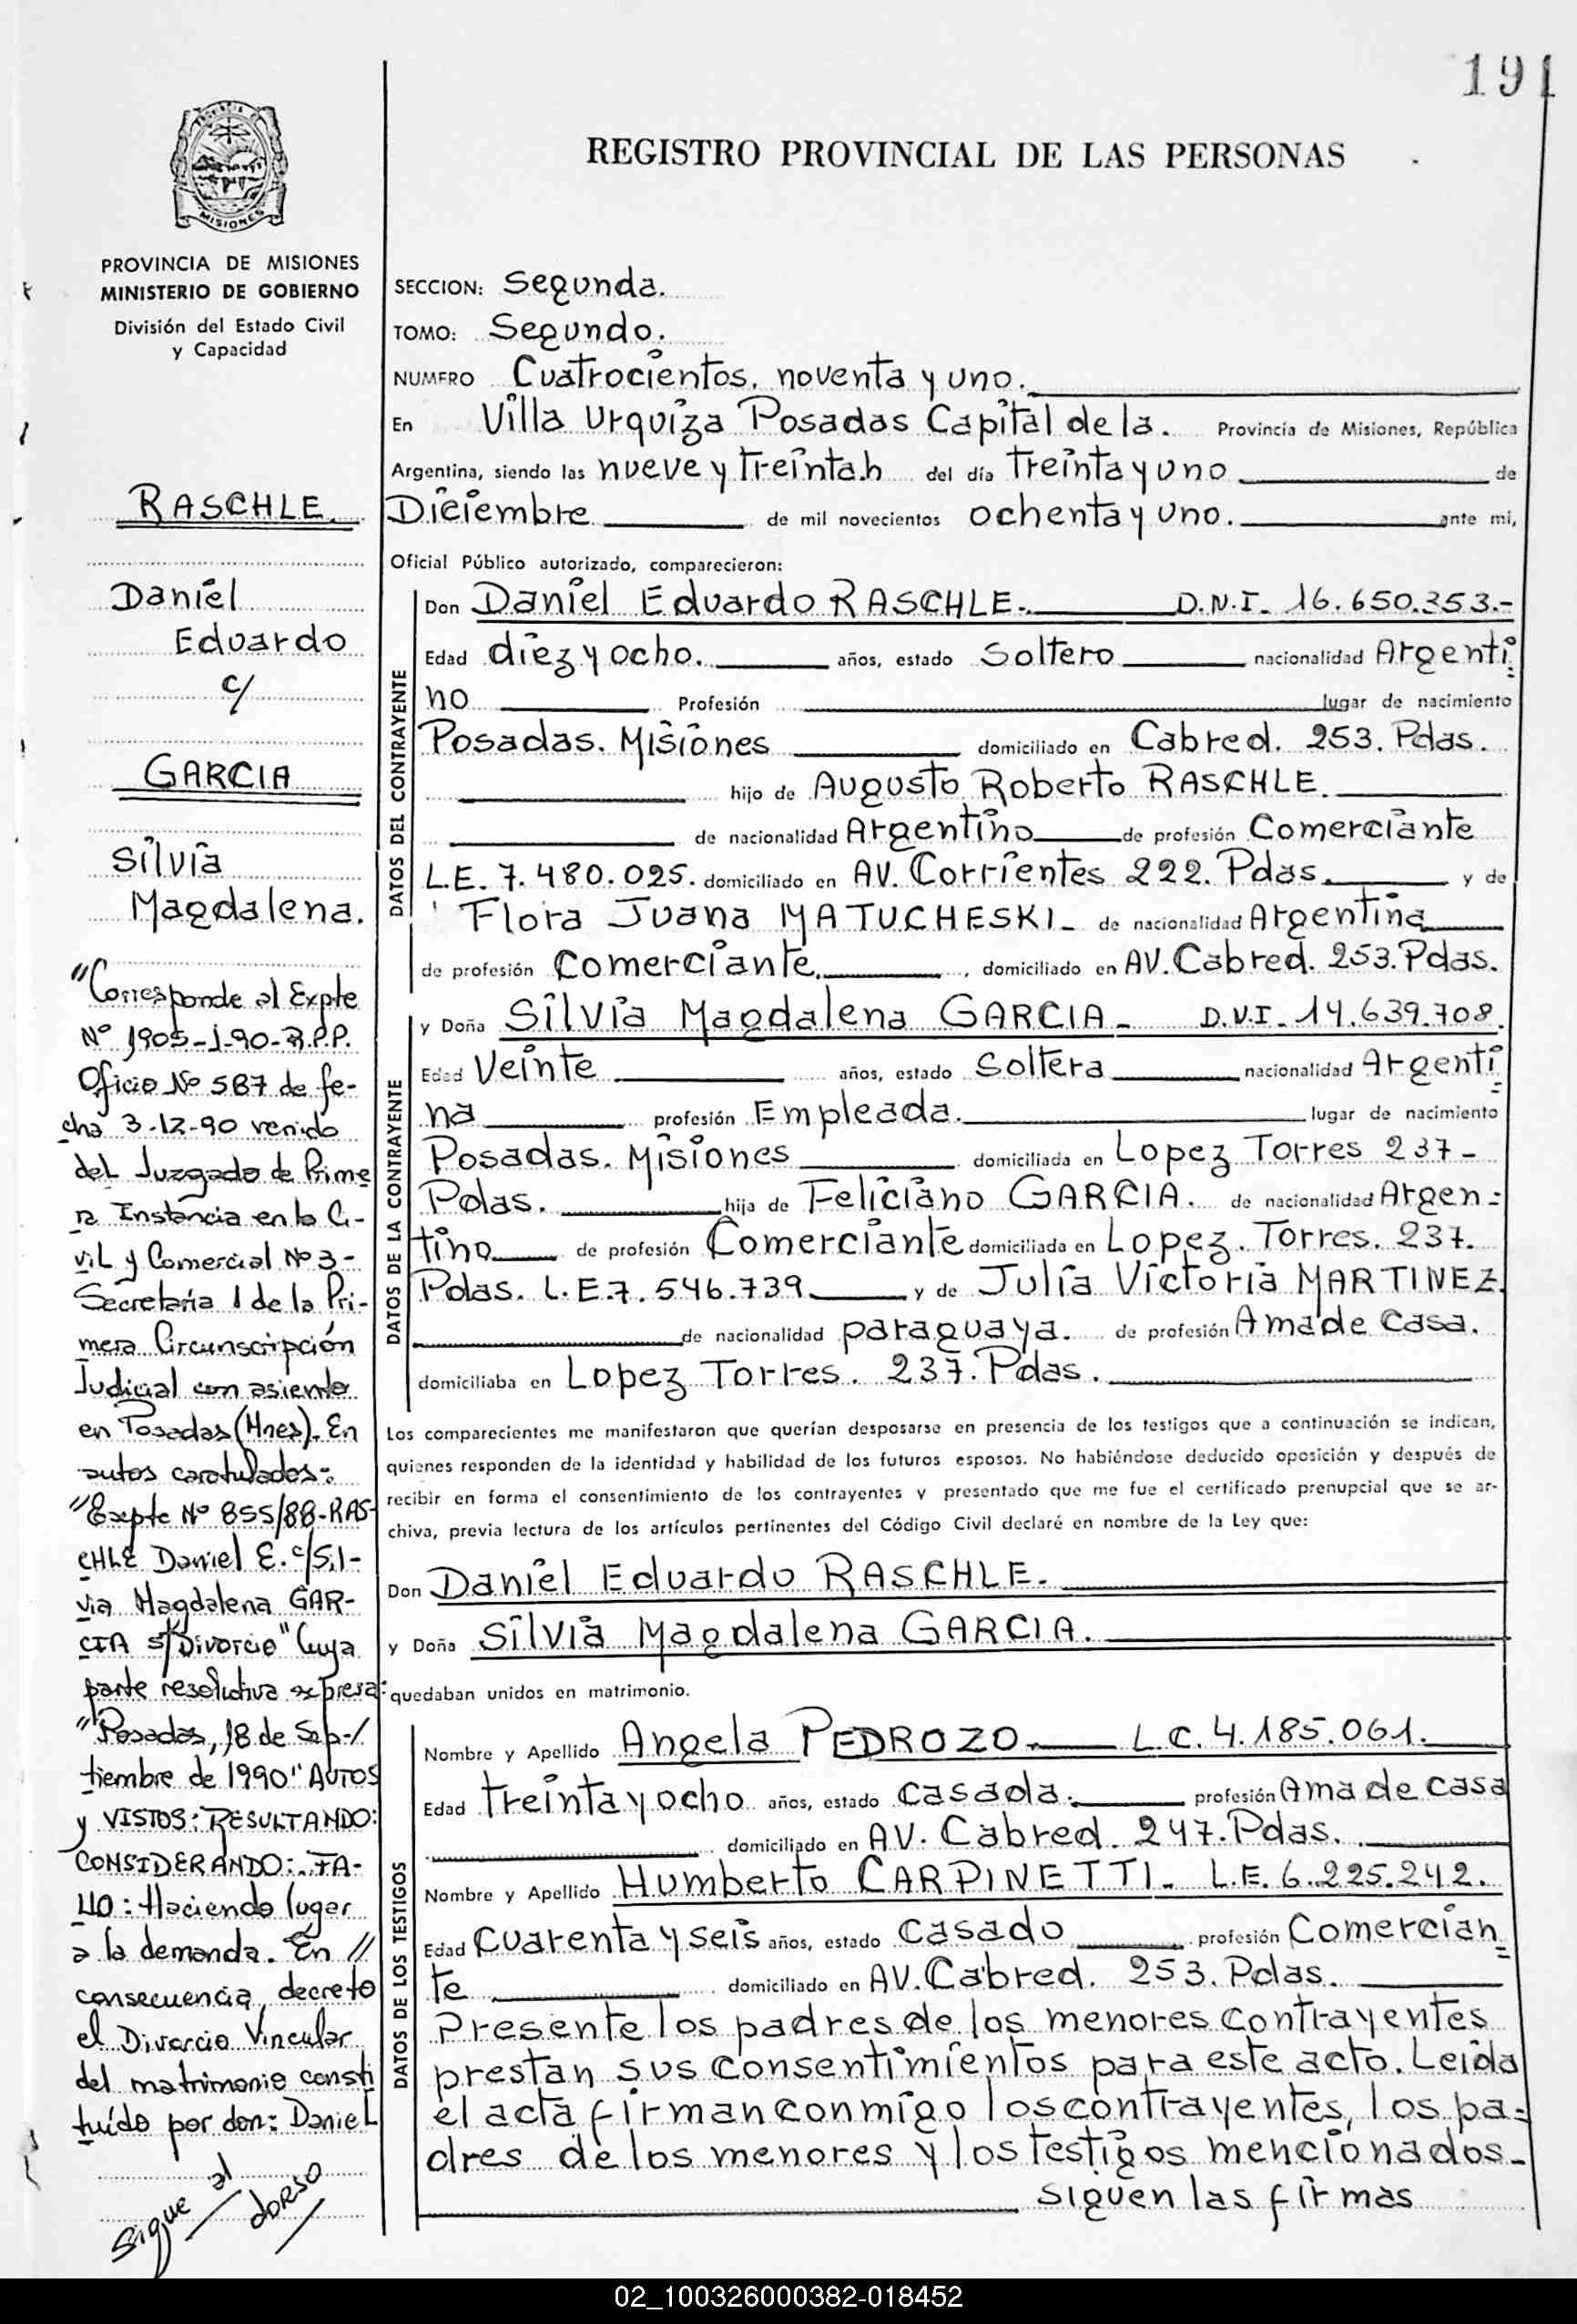 191
REGISTRO PROVINCIAL DE LAS PERSONAS
MISIONES
PROVINCIA DE MISIONES
MINISTERIO DE GOBIERNO
División del Estado Civil
y Capacidad
RASCHLE.
Daniel
Eduardo
c/
GARCIA
Silvia
Magdalena.
"Corresponde al Expte
Nº 1905-J-90-R.P.P.
Oficio Nº 587 de fe-
cha 3-12-90 venido
del Juzgado de Prime
ra Instancia en lo Ci-
vil y Comercial Nº 3-
Secretaría 1 de la Pri-
mera Circunscripción
Judicial con asiento
en Posadas (Mnes). En
autos caratulados:
"Expte Nº 855/88-RAS-
CHLE Daniel E. c/Sil-
via Magdalena GAR-
CIA s/Divorcio" Cuya
parte resolutiva expresa:
"Posadas, 18 de Sep-/
tiembre de 1990" AUTOS
y VISTOS: RESULTANDO:
CONSIDERANDO: FA-
LLO: Haciendo lugar
a la demanda. En //
consecuencia, decreto
el Divorcio Vincular
del matrimonio consti
tuído por don: Daniel
Sigue al dorso
SECCION: Segunda.
TOMO: Segundo.
NUMERO Cuatrocientos, noventa y uno.
En Villa Urquiza Posadas Capital de la. Provincia de Misiones, República
Argentina, siendo las nueve y treinta.h del día treinta y uno de
Diciembre de mil novecientos ochenta y uno. ante mi,
Oficial Público autorizado, comparecieron:
DATOS DEL CONTRAYENTE
Don Daniel Eduardo RASCHLE.- D.N.I. 16.650.353.-
Edad diez y ocho. años, estado Soltero nacionalidad Argenti
no Profesión lugar de nacimiento
Posadas. Misiones domiciliado en Cabred. 253. Pdas.
hijo de Augusto Roberto RASCHLE.
de nacionalidad Argentino de profesión Comerciante
L.E. 7.480.025. domiciliado en AV. Corrientes 222. Pdas. y de
Flora Juana MATUCHESKI- de nacionalidad Argentina
de profesión Comerciante. , domiciliado en AV. Cabred. 253. Pdas.
DATOS DE LA CONTRAYENTE
y Doña Silvia Magdalena GARCIA- D.N.I- 14.639.708.
Edad Veinte años, estado Soltera nacionalidad Argenti
na profesión Empleada. lugar de nacimiento
Posadas. Misiones domiciliada en Lopez Torres 237-
Pdas. hija de Feliciano GARCIA. de nacionalidad Argen=
tino de profesión Comerciante domiciliada en Lopez. Torres. 237.
Pdas. L.E.7.546.739 y de Julia Victoria MARTINEZ.
de nacionalidad paraguaya. de profesión Ama de Casa.
domiciliaba en Lopez Torres. 237. Pdas.
Los comparecientes me manifestaron que querían desposarse en presencia de los testigos que a continuación se indican,
quienes responden de la identidad y habilidad de los futuros esposos. No habiéndose deducido oposición y después de
recibir en forma el consentimiento de los contrayentes y presentado que me fue el certificado prenupcial que se ar-
chiva, previa lectura de los artículos pertinentes del Código Civil declaré en nombre de la Ley que:
Don Daniel Eduardo RASCHLE.
y Doña Silvia Magdalena GARCIA.
quedaban unidos en matrimonio.
DATOS DE LOS TESTIGOS
Nombre y Apellido Angela PEDROZO L.C. 4.185.061.
Edad treinta y ocho años, estado casada. profesión Ama de casa
domiciliado en AV. Cabred. 247. Pdas.
Nombre y Apellido Humberto CARPINETTI- L.E. 6.225.242.
Edad cuarenta y seis años, estado casado profesión Comercian
te domiciliado en AV. Cabred. 253. Pdas.
Presente los padres de los menores contrayentes
prestan sus consentimientos para este acto. Leida
el acta firman conmigo los contrayentes, los pa=
dres de los menores y los testigos mencionados-
siguen las firmas
02_100326000382-018452